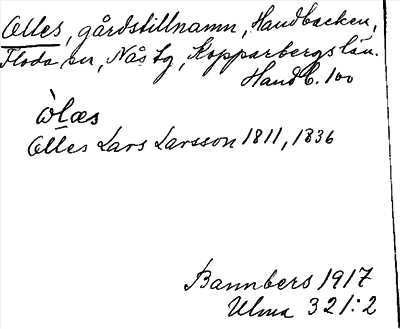 Olles, gårdstillnamn, Handbacken,
Floda sn, Nås tg, Kopparbergs län.
Handb. 100
òlæs
Olles Lars Larsson 1811, 1836
Bannbers 1917
Ulma 321:2